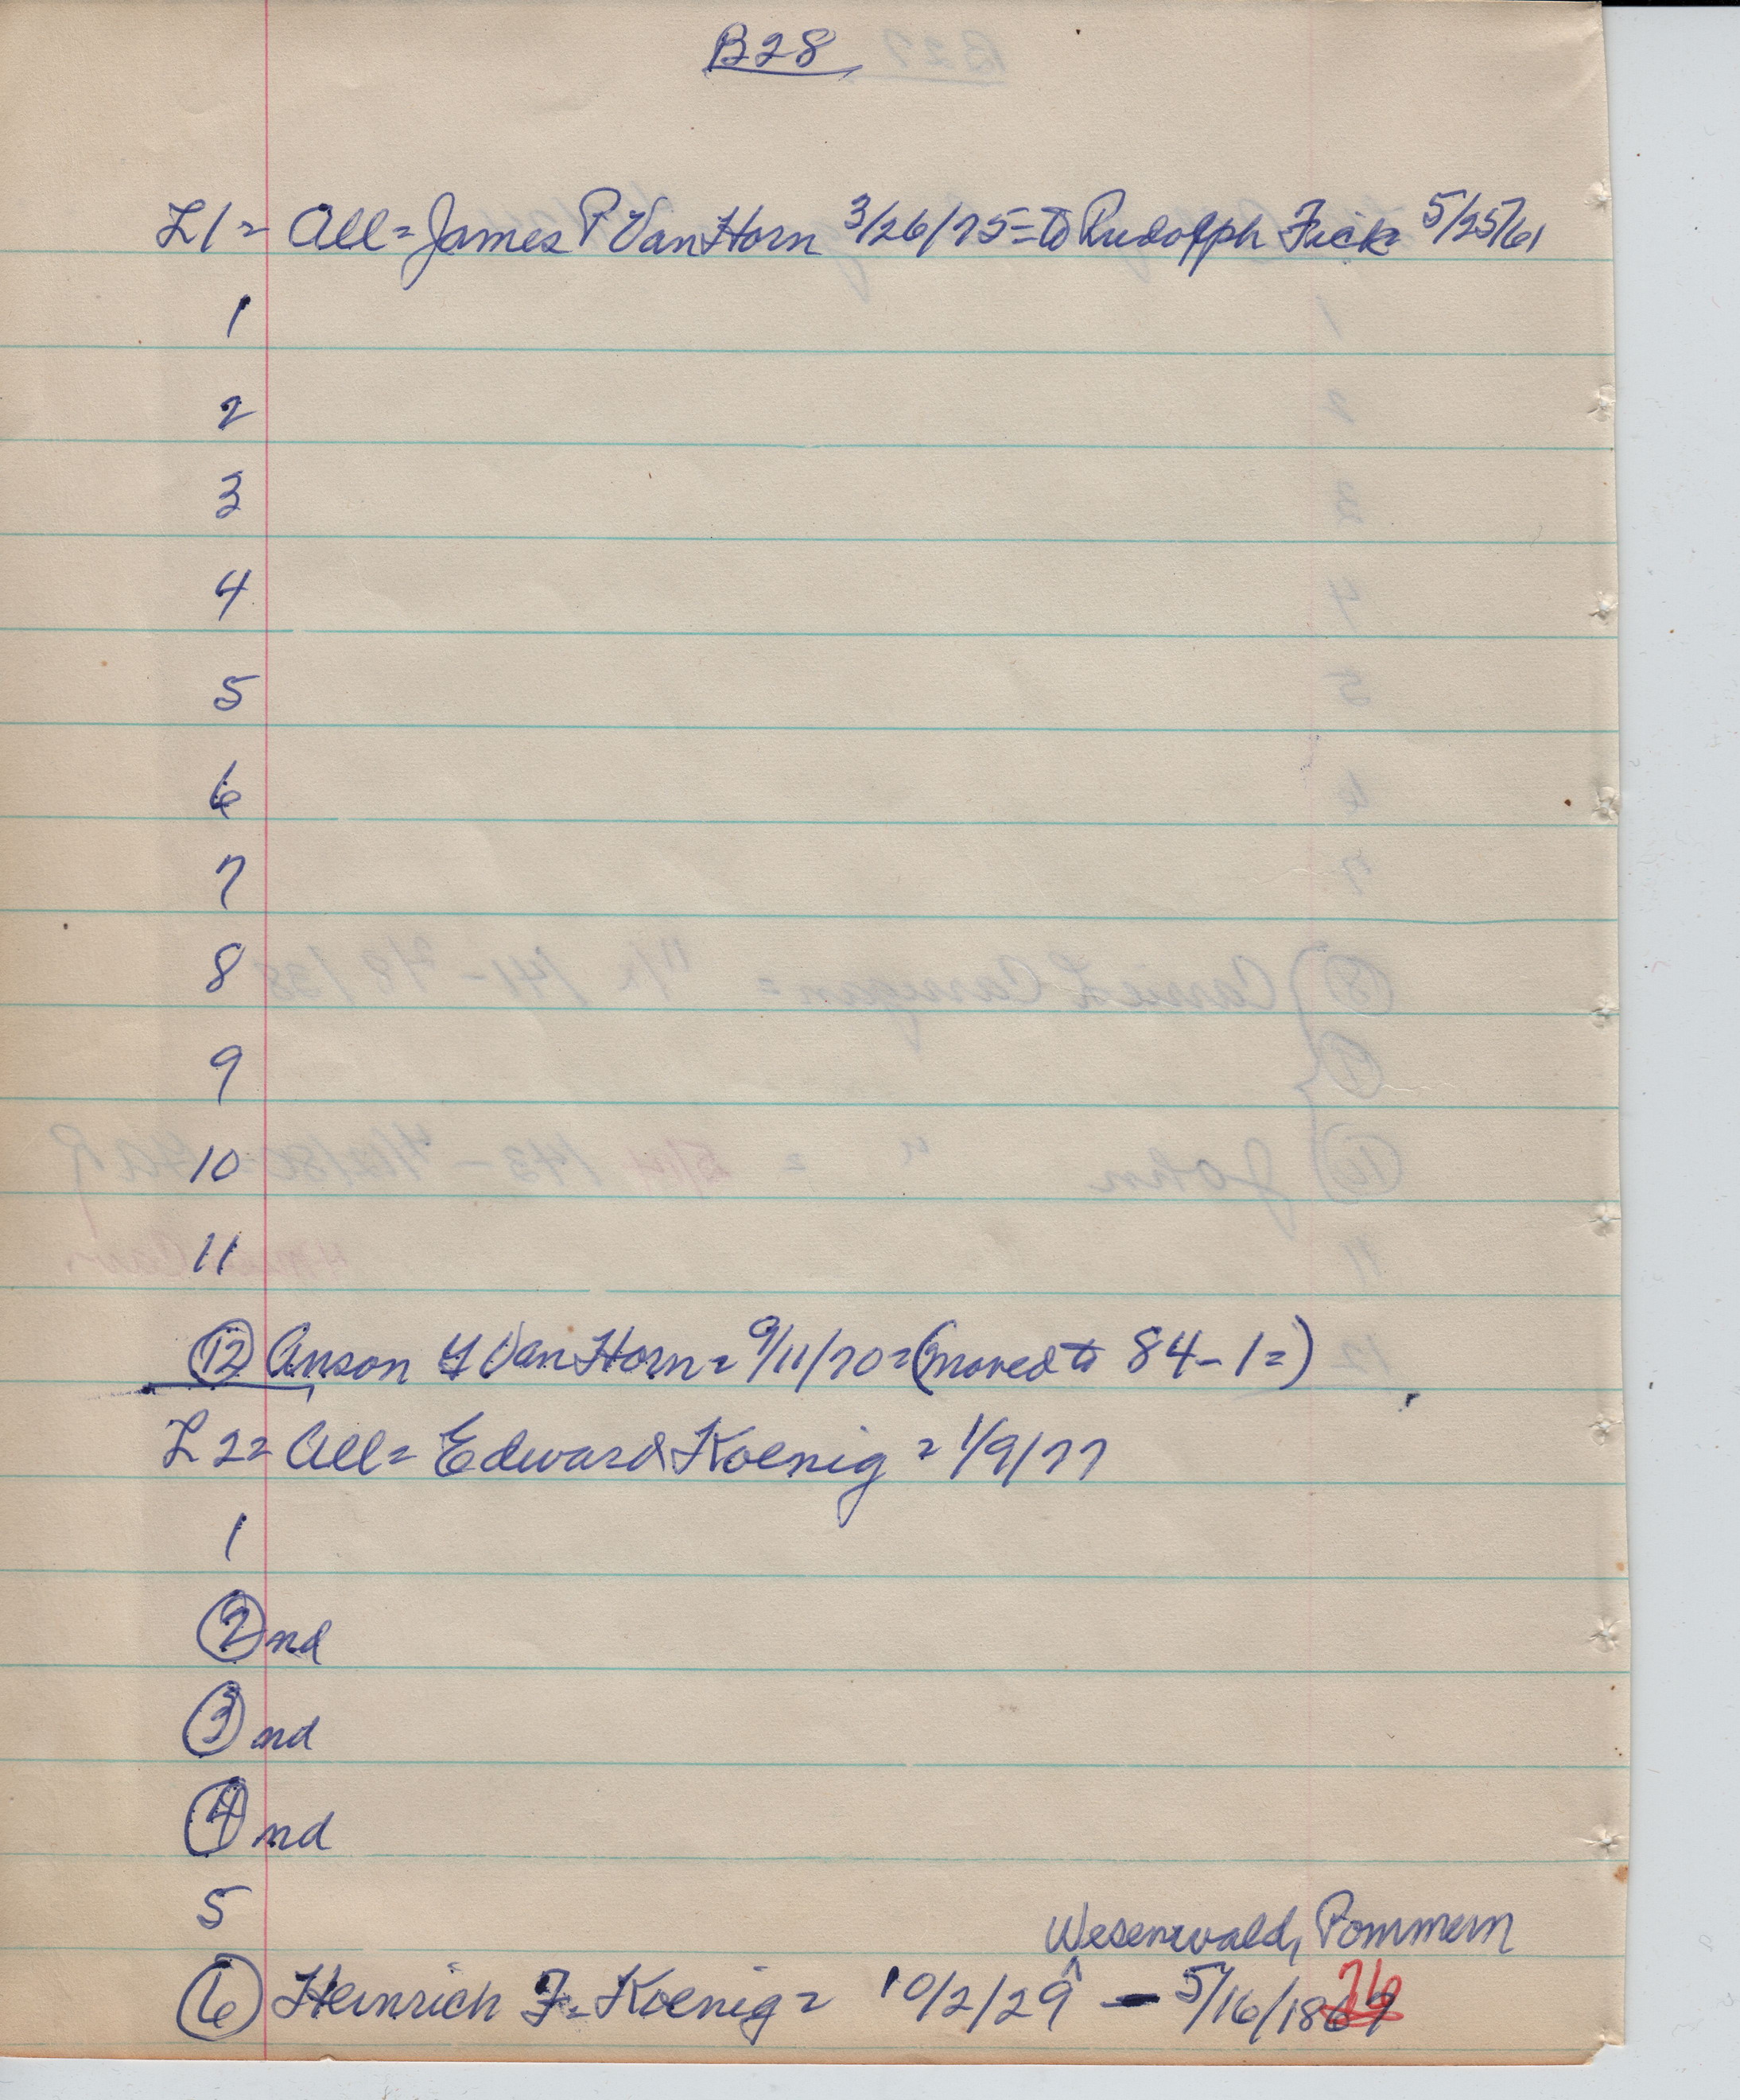 B28
L1= All= James P VanHorn 3/26/75= to Rudolph Fick 5/25/61
1
2
3
4
5
6
7
8
9
10
11
12 Anson Y VanHorn= 9/11/70= (moved to 84-1=)
L2= All= Edward Koenig = 1/9/77
1
2 nd
3 nd
4 nd
5
Wesenwald, Pommern
6 Heinrich F. Koenig= 10/2/29 ^ - 5/16/1869 76